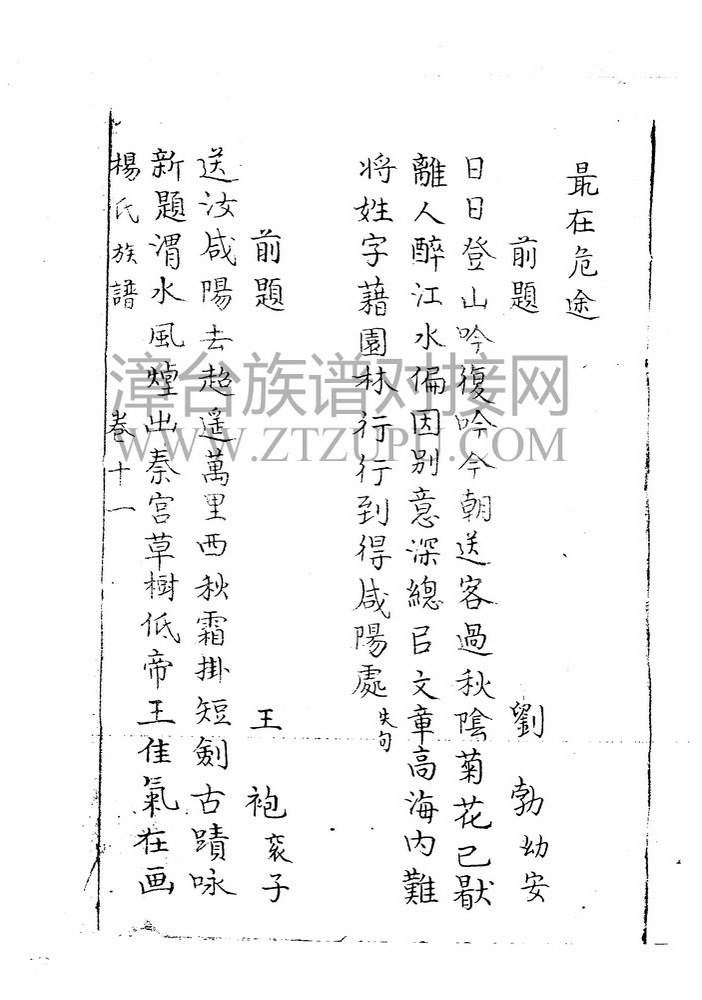 最在危途
前題 劉勃幼安
日日登山吟復吟今朝送客過秋陰菊花已厭
離人醉江水偏因別意深總㠯文章高海內難
將姓字藉園林行行到得咸陽處失句
前題 王袍衮子
送汝咸陽去超遥萬里西秋霜掛短劍古蹟咏
新題渭水風煙出秦宫草樹低帝王佳氣在画
楊氏族譜 卷十一
漳台族谱对接网
WWW.ZTZUPU.COM